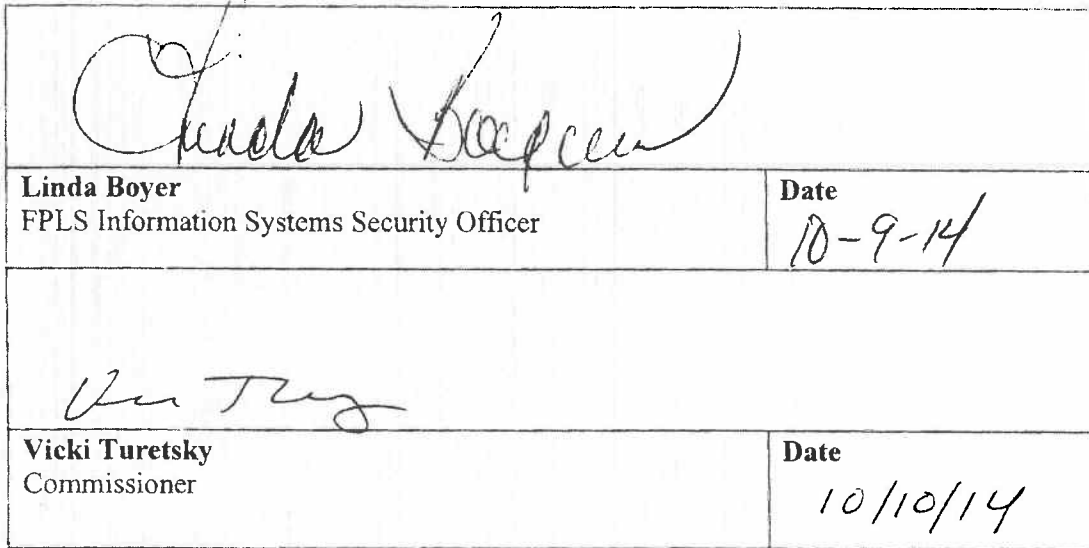 Linda Boyer
Linda Boyer
FPLS Information Systems Security Officer
Date
10-9-14
Vicki Turetsky
Commissioner
Date
10/10/14